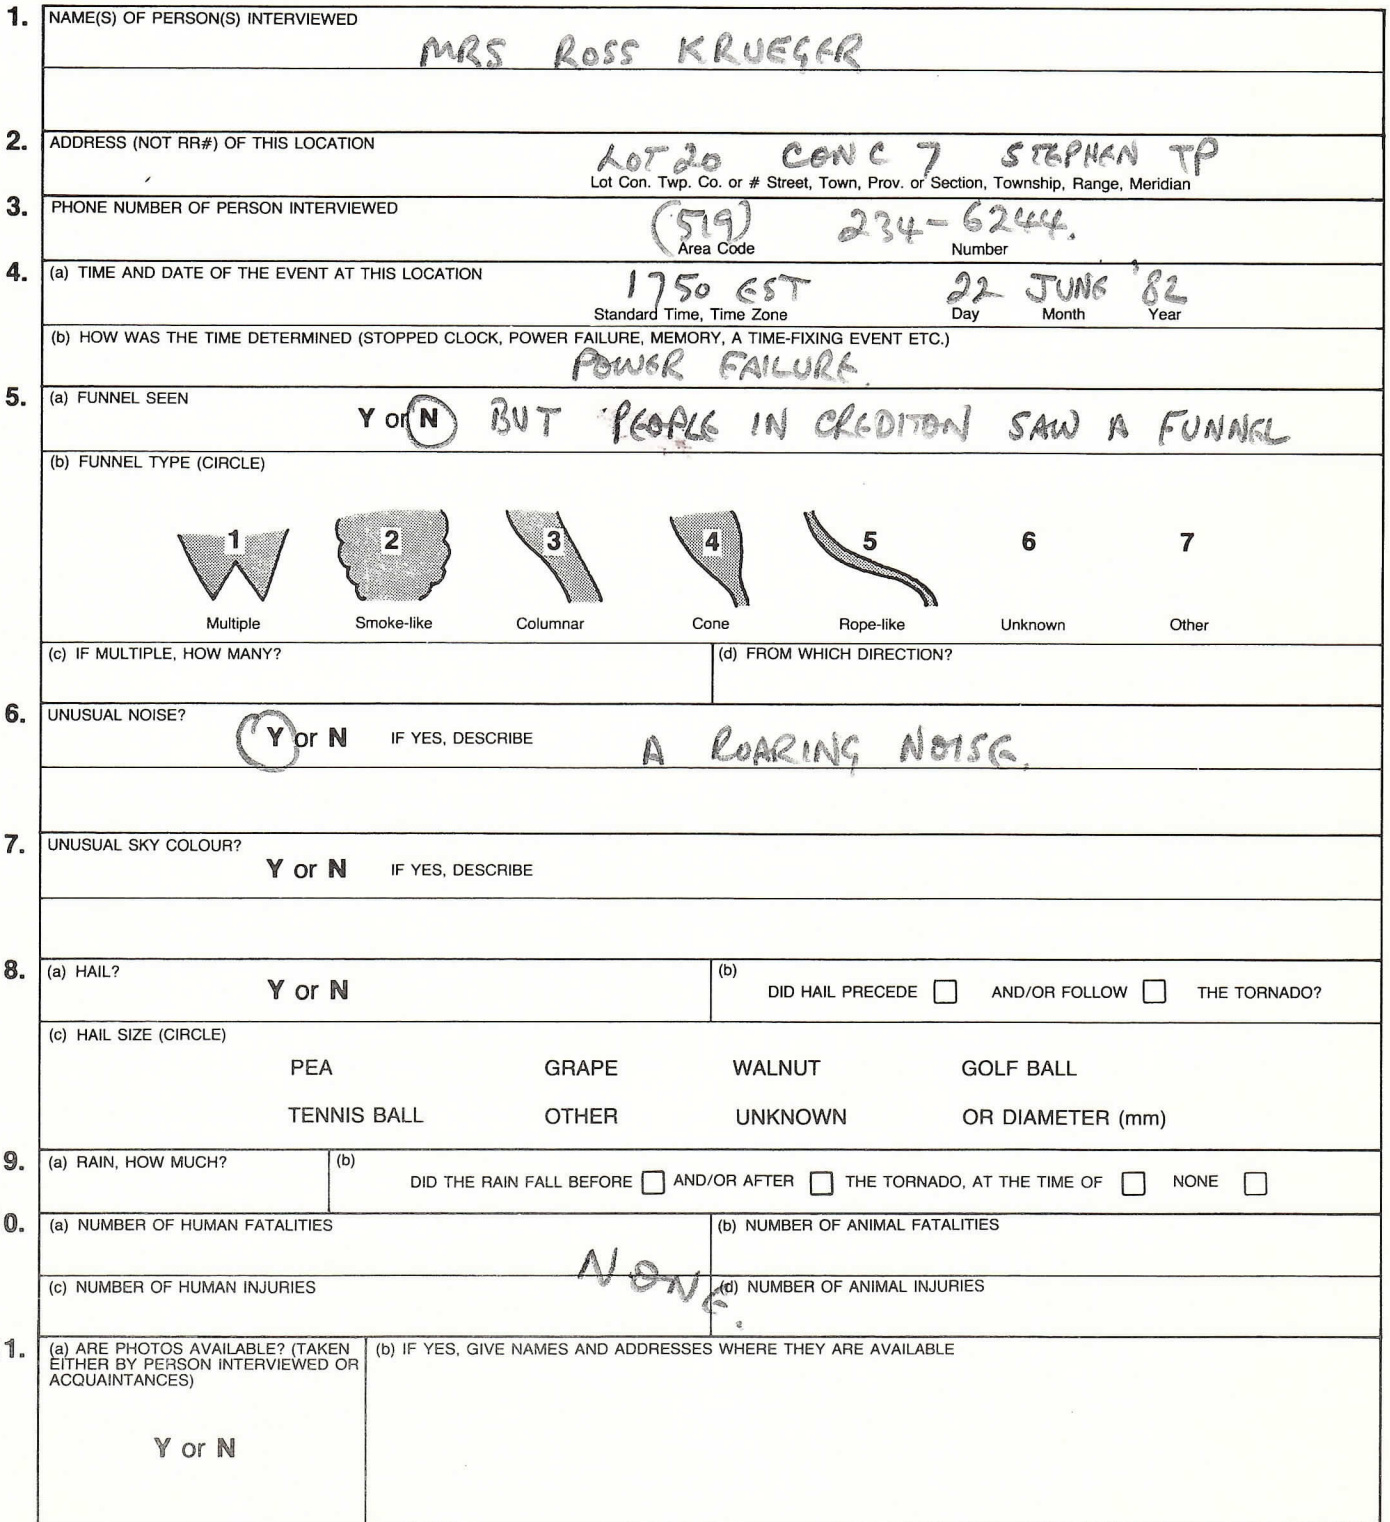 1. NAME(S) OF PERSON(S) INTERVIEWED
MRS ROSS KRUEGER
2. ADDRESS (NOT RR#) OF THIS LOCATION
LOT 20 CONC 7 STEPHEN TP
Lot Con. Twp. Co. or # Street, Town, Prov. or Section, Township, Range, Meridian
3. PHONE NUMBER OF PERSON INTERVIEWED
(519) 234-6244.
Area Code Number
4. (a) TIME AND DATE OF THE EVENT AT THIS LOCATION
1750 EST 22 JUNE '82
Standard Time, Time Zone Day Month Year
(b) HOW WAS THE TIME DETERMINED (STOPPED CLOCK, POWER FAILURE, MEMORY, A TIME-FIXING EVENT ETC.)
POWER FAILURE.
5. (a) FUNNEL SEEN
Y or N BUT PEOPLE IN CREDITON SAW A FUNNEL
(b) FUNNEL TYPE (CIRCLE)
1 2 3 4 5 6 7
Multiple Smoke-like Columnar Cone Rope-like Unknown Other
(c) IF MULTIPLE, HOW MANY? (d) FROM WHICH DIRECTION?
6. UNUSUAL NOISE?
Y or N IF YES, DESCRIBE A ROARING NOISE.
7. UNUSUAL SKY COLOUR?
Y or N IF YES, DESCRIBE
8. (a) HAIL? (b)
Y or N DID HAIL PRECEDE AND/OR FOLLOW THE TORNADO?
(c) HAIL SIZE (CIRCLE)
PEA GRAPE WALNUT GOLF BALL
TENNIS BALL OTHER UNKNOWN OR DIAMETER (mm)
9. (a) RAIN, HOW MUCH? (b)
DID THE RAIN FALL BEFORE AND/OR AFTER THE TORNADO, AT THE TIME OF NONE
0. (a) NUMBER OF HUMAN FATALITIES (b) NUMBER OF ANIMAL FATALITIES
NONE.
(c) NUMBER OF HUMAN INJURIES (d) NUMBER OF ANIMAL INJURIES
1. (a) ARE PHOTOS AVAILABLE? (TAKEN (b) IF YES, GIVE NAMES AND ADDRESSES WHERE THEY ARE AVAILABLE
EITHER BY PERSON INTERVIEWED OR
ACQUAINTANCES)
Y or N